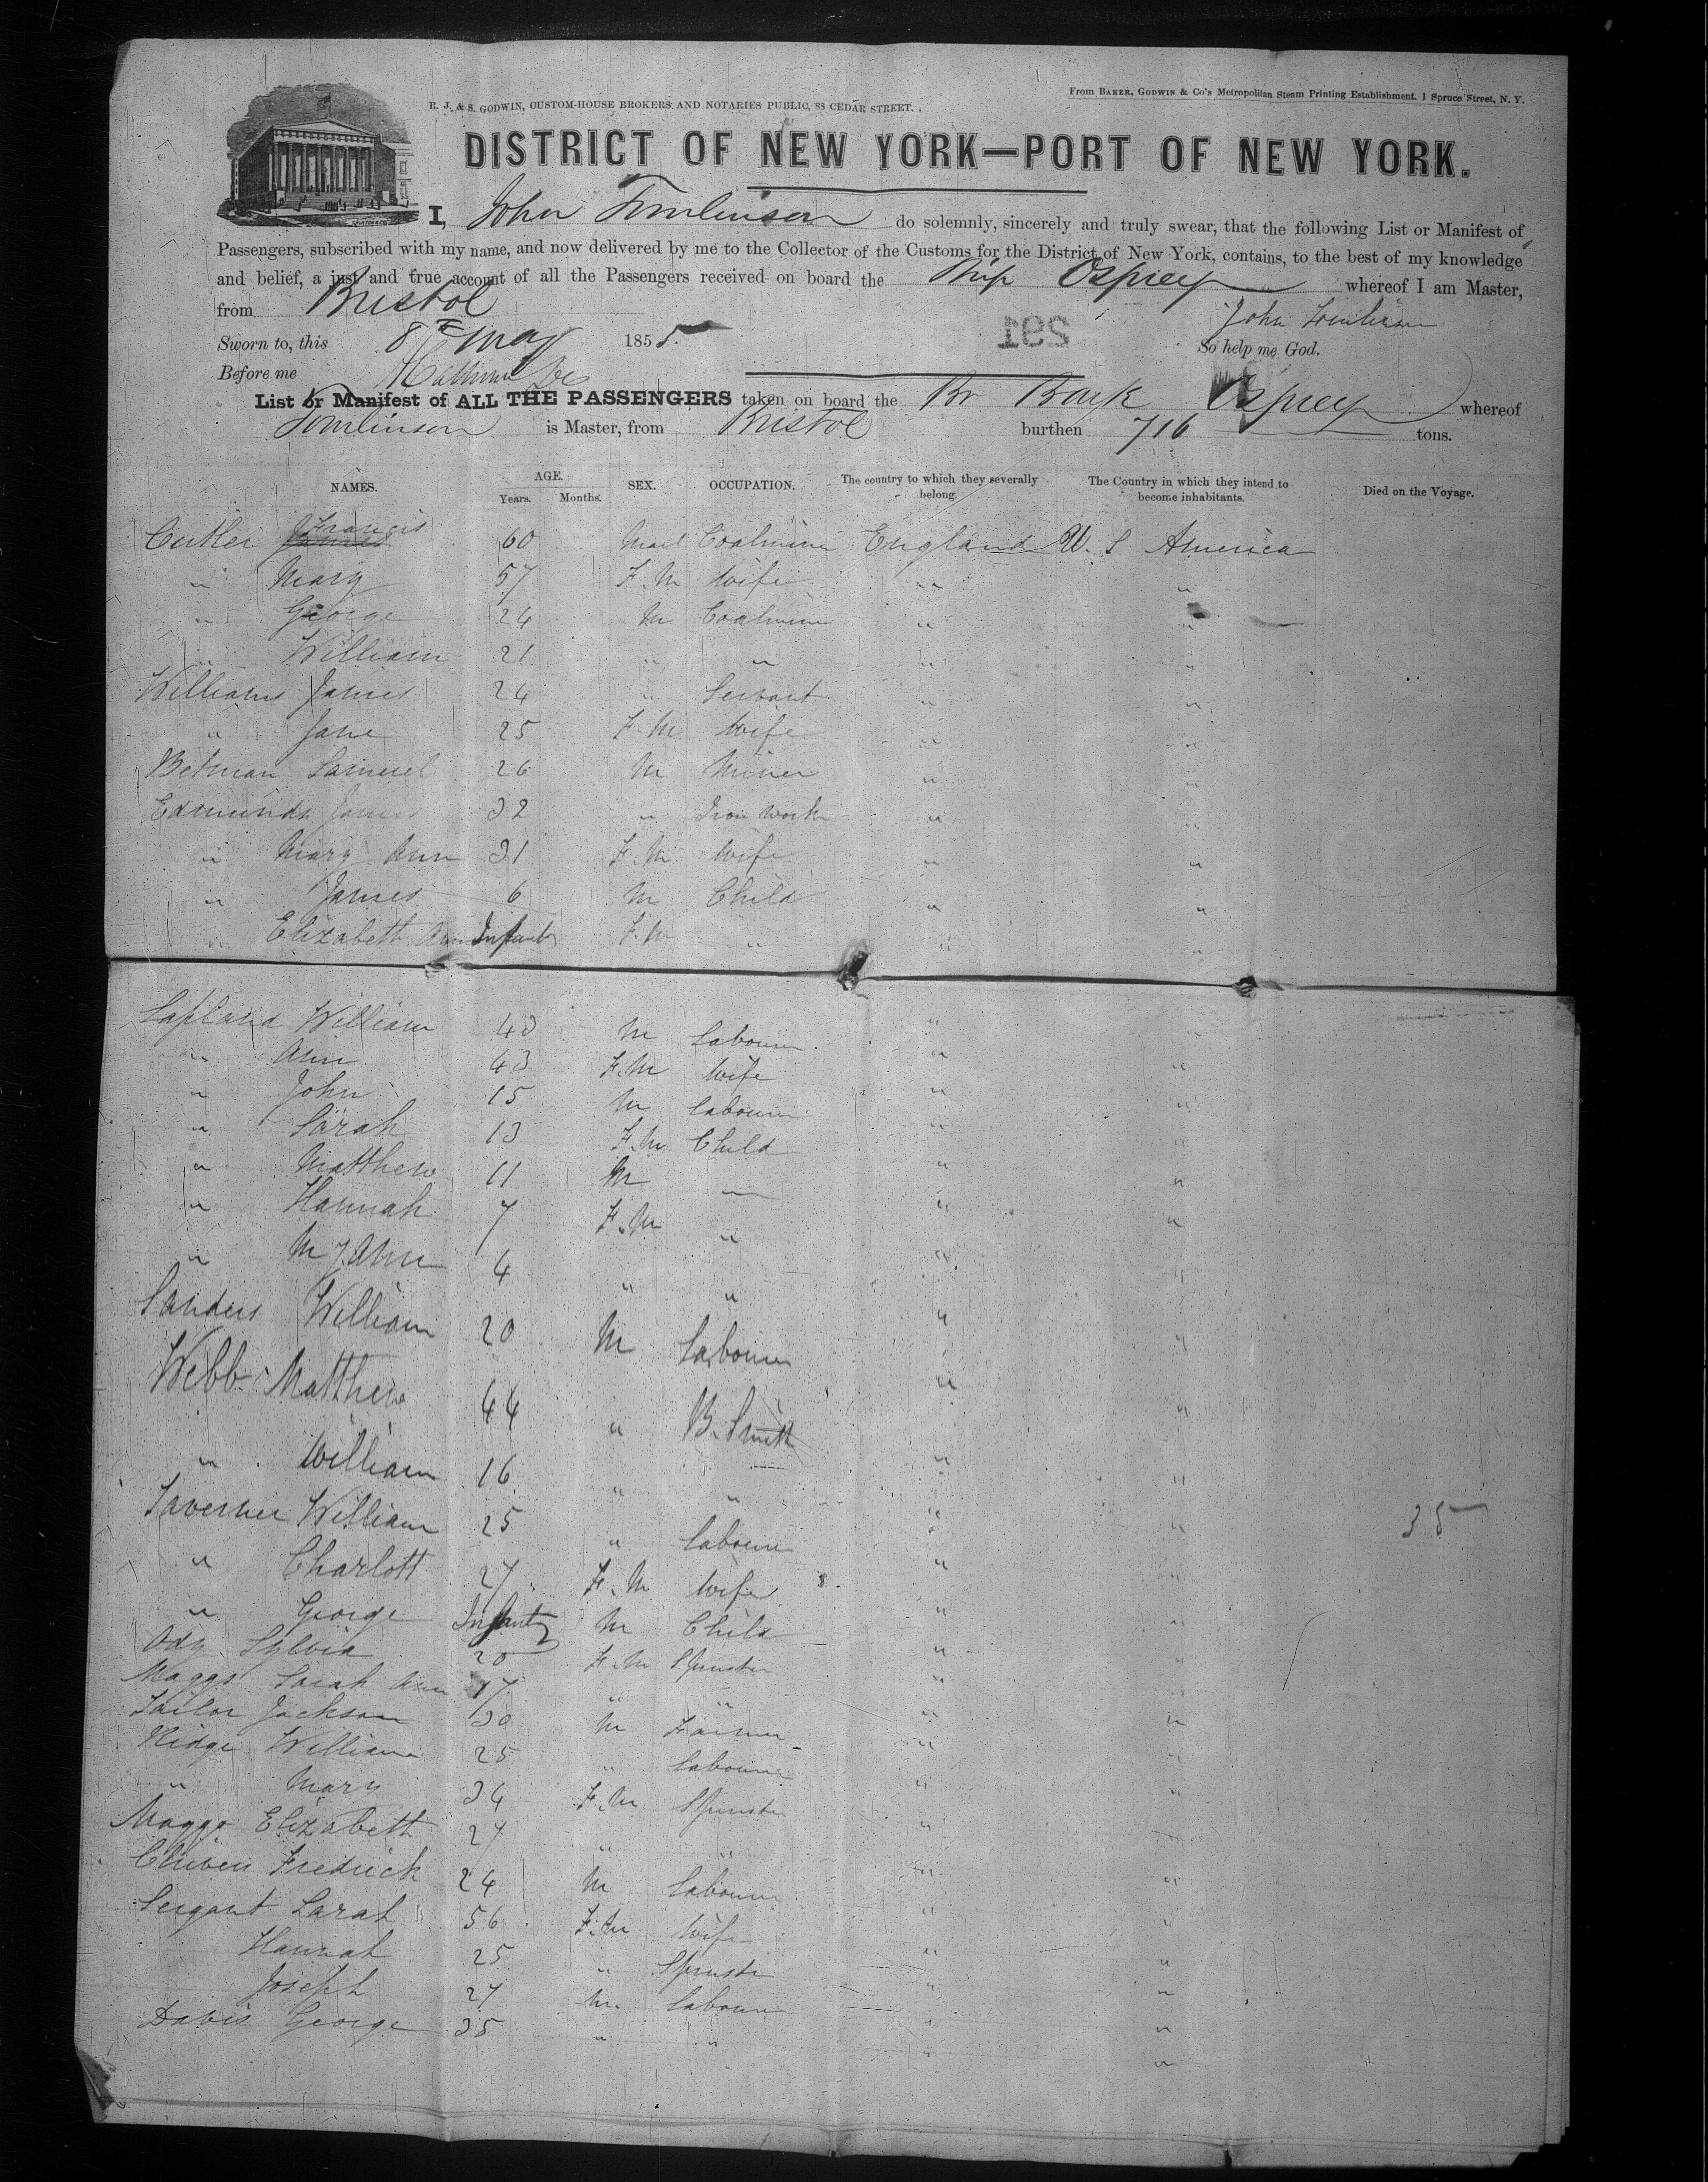 R. J. & S. GODWIN, CUSTOM-HOUSE BROKERS AND NOTARIES PUBLIC, 88 CEDAR STREET.
From BAKER, GODWIN & Co's Metropolitan Steam Printing Establishment. 1 Spruce Street, N. Y.
DISTRICT OF NEW YORK—PORT OF NEW YORK.
I, John Tomlinson do solemnly, sincerely and truly swear, that the following List or Manifest of
Passengers, subscribed with my name, and now delivered by me to the Collector of the Customs for the District of New York, contains, to the best of my knowledge
and belief, a just and true account of all the Passengers received on board the Ship Osprey whereof I am Master,
from Bristol
John Tomlinson
Sworn to, this 8th May 1855. 192 So help me God.
Before me
List or Manifest of ALL THE PASSENGERS taken on board the Br Bark Osprey whereof
Tomlinson is Master, from Bristol burthen 716 tons.
NAMES. AGE. Years. Months. SEX. OCCUPATION. The country to which they severally belong. The Country in which they intend to become inhabitants. Died on the Voyage.
Cutler James Francis 60 Mail Coalminer England U. S America
" Mary 57 F.M wife " "
" George 24 M Coalminer " "
" William 21 " " " "
Williams James 24 " Servant " "
" Jane 25 F.M wife " "
Betman Samuel 26 M Miner " "
Edmunds James 32 " Iron Worker " "
" Mary Ann 31 F.M wife " "
" James 6 M Child " "
" Elizabeth Ann Infant F.M " " "
Lapland William 43 M Labourer " "
" Ann 43 F.M wife " "
" John 15 M Labourer " "
" Sarah 13 F.M Child " "
" Matthew 11 M — " "
" Hannah 7 F.M " " "
" M J. Ann 4 " " " "
Sanders William 20 M Labourer " "
Webb Matthew 44 " B. Smith " "
" William 16 " " " "
Taverner William 25 " Labourer " " 35
" Charlott 27 F.M wife " "
" George Infant M Child " "
Ody Sylvia 20 F.M Spinster " "
Maggs Sarah Ann 17 " " " "
Tailor Jackson 30 M Farmer " "
Ridge William 25 " Labourer " "
" Mary 34 F.M Spinster " "
Maggs Elizabeth 27 " " " "
Fredrick 24 M Labourer " "
Sergant Sarah 56 F.M wife " "
Hannah 25 " Spinster " "
Joseph 27 M Labourer " "
Davis George 35 " " " "